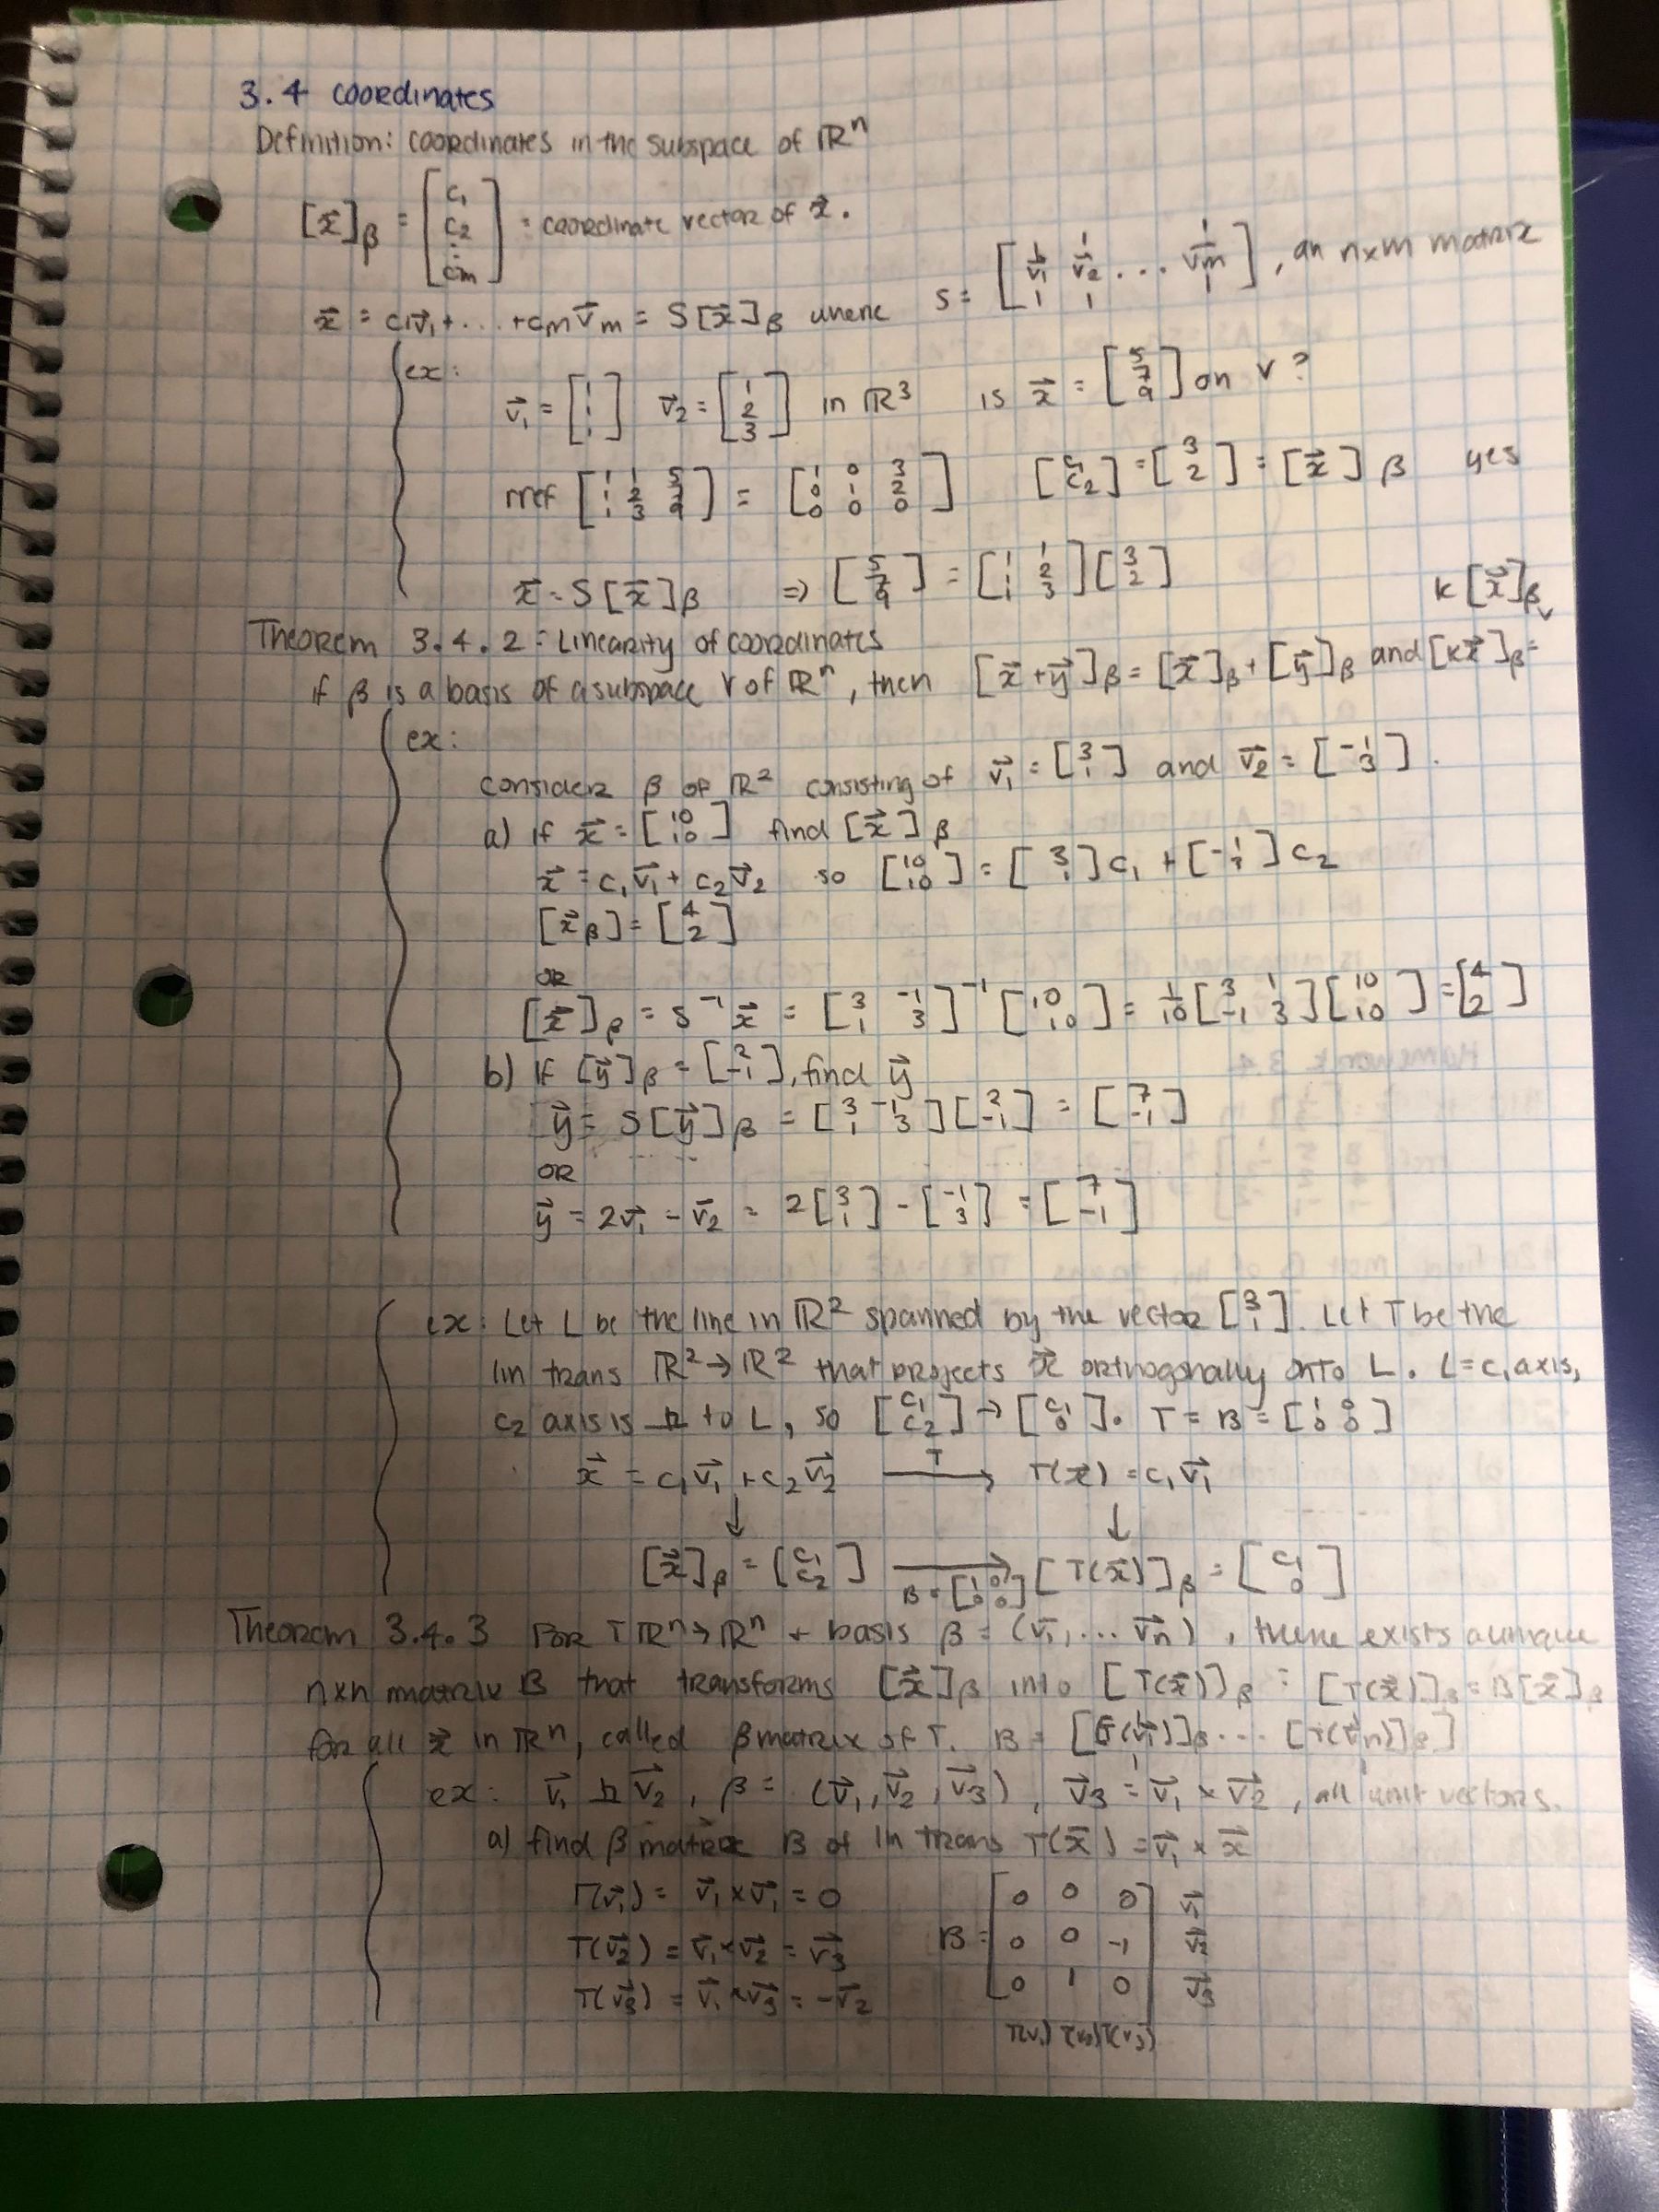 3.4 coordinates
Definition: coordinates in the subspace of ℝⁿ
[x⃗]β = [c₁ c₂ ⋮ cm] = coordinate vector of x⃗.
x⃗ = c₁v⃗₁ + ... + cm v⃗m = S[x⃗]β where S = [v⃗₁ v⃗₂ ... v⃗m], an n×m matrix
ex:
v⃗₁ = [1 1 1] v⃗₂ = [1 2 3] in ℝ³ is x⃗ = [5 7 9] on V?
rref [1 1 5; 1 2 7; 1 3 9] = [1 0 3; 0 1 2; 0 0 0] [c₁ c₂] = [3 2] = [x⃗]β yes
x⃗ = S[x⃗]β ⇒ [5 7 9] = [1 1; 1 2; 1 3][3 2]
Theorem 3.4.2 = Linearity of coordinates
if β is a basis of a subspace V of ℝⁿ, then [x⃗+y⃗]β = [x⃗]β + [y⃗]β and [kx⃗]β = k[x⃗]β
ex:
consider β of ℝ² consisting of v⃗₁ = [3 1] and v⃗₂ = [-1 3].
a) if x⃗ = [10 10] find [x⃗]β
x⃗ = c₁v⃗₁ + c₂v⃗₂ so [10 10] = [3 1]c₁ + [-1 3]c₂
[x⃗β] = [4 2]
OR
[x⃗]β = S⁻¹x⃗ = [3 -1; 1 3]⁻¹[10 10] = 1/10[3 1; -1 3][10 10] = [4 2]
b) if [y⃗]β = [2 -1], find y⃗
y⃗ = S[y⃗]β = [3 -1; 1 3][2 -1] = [7 -1]
OR
y⃗ = 2v⃗₁ - v⃗₂ = 2[3 1] - [-1 3] = [7 -1]
ex: Let L be the line in ℝ² spanned by the vector [3 1]. Let T be the
lin trans ℝ²→ℝ² that projects x⃗ orthogonally onto L. L = c₁ axis,
c₂ axis is ⊥ to L, so [c₁ c₂] → [c₁ 0]. T = B = [1 0; 0 0]
x⃗ = c₁v⃗₁ + c₂v⃗₂ T→ T(x⃗) = c₁v⃗₁
↓ ↓
[x⃗]β = [c₁ c₂] → B = [1 0; 0 0] [T(x⃗)]β = [c₁ 0]
Theorem 3.4.3 For T ℝⁿ→ℝⁿ + basis β = (v⃗₁, ... v⃗n), there exists a unique
n×n matrix B that transforms [x⃗]β into [T(x⃗)]β = [T(x⃗)]β = B[x⃗]β
for all x⃗ in ℝⁿ, called β matrix of T. B = [[T(v⃗₁)]β ... [T(v⃗n)]β]
ex: v⃗₁ ⊥ v⃗₂, β = (v⃗₁, v⃗₂, v⃗₃), v⃗₃ = v⃗₁ × v⃗₂, all unit vectors.
a) find β matrix B of lin trans T(x⃗) = v⃗₁ × x⃗
T(v⃗₁) = v⃗₁ × v⃗₁ = 0
T(v⃗₂) = v⃗₁ × v⃗₂ = v⃗₃
T(v⃗₃) = v⃗₁ × v⃗₃ = -v⃗₂
B = [0 0 0; 0 0 -1; 0 1 0] v⃗₁ v⃗₂ v⃗₃
T(v₁) T(v₂) T(v₃)